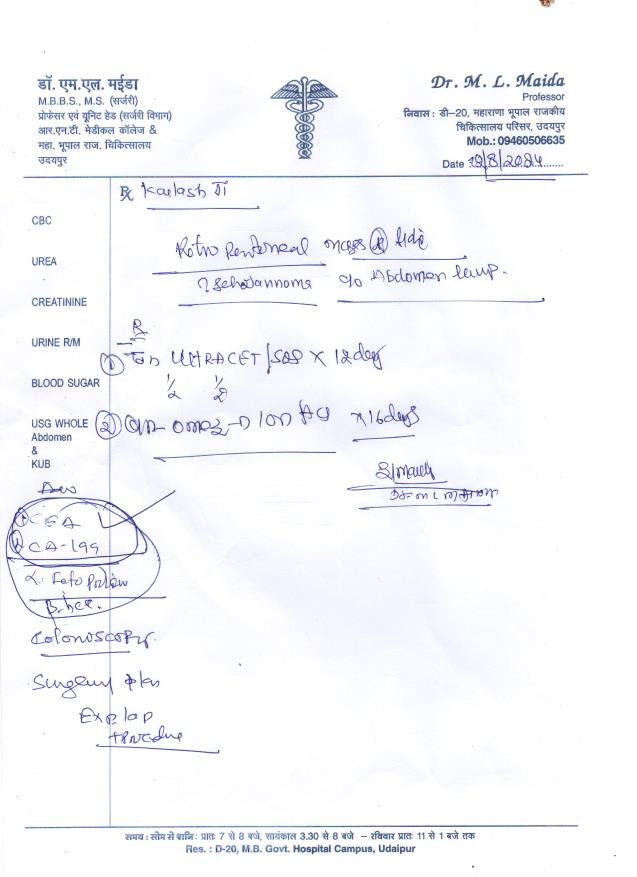 डॉ. एम.एल. मईडा
M.B.B.S., M.S. (सर्जरी)
प्रोफेसर एवं यूनिट हेड (सर्जरी विभाग)
आर.एन.टी. मेडीकल कॉलेज &
महा. भूपाल राज. चिकित्सालय
उदयपुर
Dr. M. L. Maida
Professor
निवास : डी–20, महाराणा भूपाल राजकीय
चिकित्सालय परिसर, उदयपुर
Mob.: 09460506635
Date
Rx Kailash Ji
CBC
UREA
CREATININE
URINE R/M
BLOOD SUGAR
USG WHOLE
Abdomen
&
KUB
Retro Peritoneal mass (R) side
? Schwannoma c/o Abdomen lump.
Rx
① Tab ULTRACET / SOS X 12 day
1/2 1/2
② X 16 days
CEA
CA-199
B. hCG.
Colonoscopy.
Surgery plan
Exp. lap
procedure
समय : सोम से शनि : प्रातः 7 से 8 बजे, सायंकाल 3.30 से 8 बजे – रविवार प्रातः 11 से 1 बजे तक
Res. : D-20, M.B. Govt. Hospital Campus, Udaipur